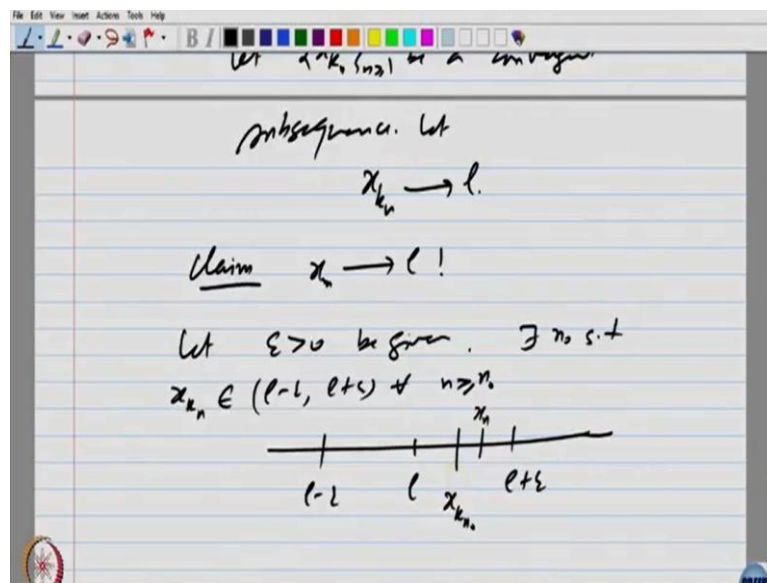 File Edit View Insert Actions Tools Help
B I
Let {x_{k_n}}_{n≥1} be a convergent
subsequence. Let
x_{k_n} → l.
Claim x_n → l !
Let ε>0 be given. ∃ n₀ s.t
x_{k_n} ∈ (l-ε, l+ε) ∀ n≥n₀
x_n
l-ε l x_{k_{n₀}} l+ε